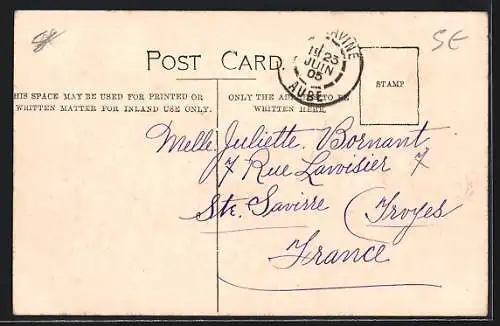 SE
POST CARD.
AVINE
1E 23
JUIN
05
AUBE
STAMP
HIS SPACE MAY BE USED FOR PRINTED OR
WRITTEN MATTER FOR INLAND USE ONLY.
ONLY THE ADDRESS TO BE
WRITTEN HERE.
Melle Juliette Bornant
7 Rue Lavoisier 7
Ste. Savirre (Troyes
France